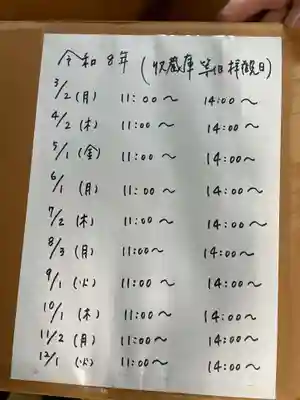 令和8年 (収蔵庫 特別拝観日)
3/2 (月) 11:00〜 14:00〜
4/2 (木) 11:00〜 14:00〜
5/1 (金) 11:00〜 14:00〜
6/1 (月) 11:00〜 14:00〜
7/2 (木) 11:00〜 14:00〜
8/3 (月) 11:00〜 14:00〜
9/1 (火) 11:00〜 14:00〜
10/1 (木) 11:00〜 14:00〜
11/2 (月) 11:00〜 14:00〜
12/1 (火) 11:00〜 14:00〜